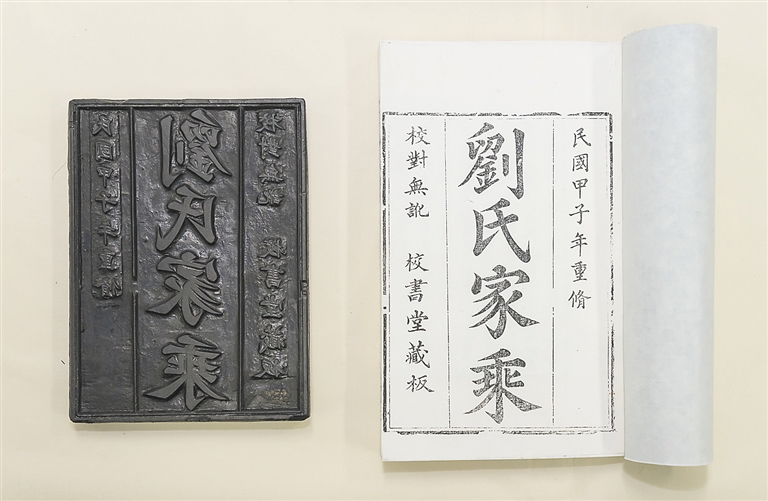 民國甲子年重脩
劉氏家乘
校對無訛 校書堂藏板
民國甲子年重脩
劉氏家乘
校對無訛 校書堂藏板